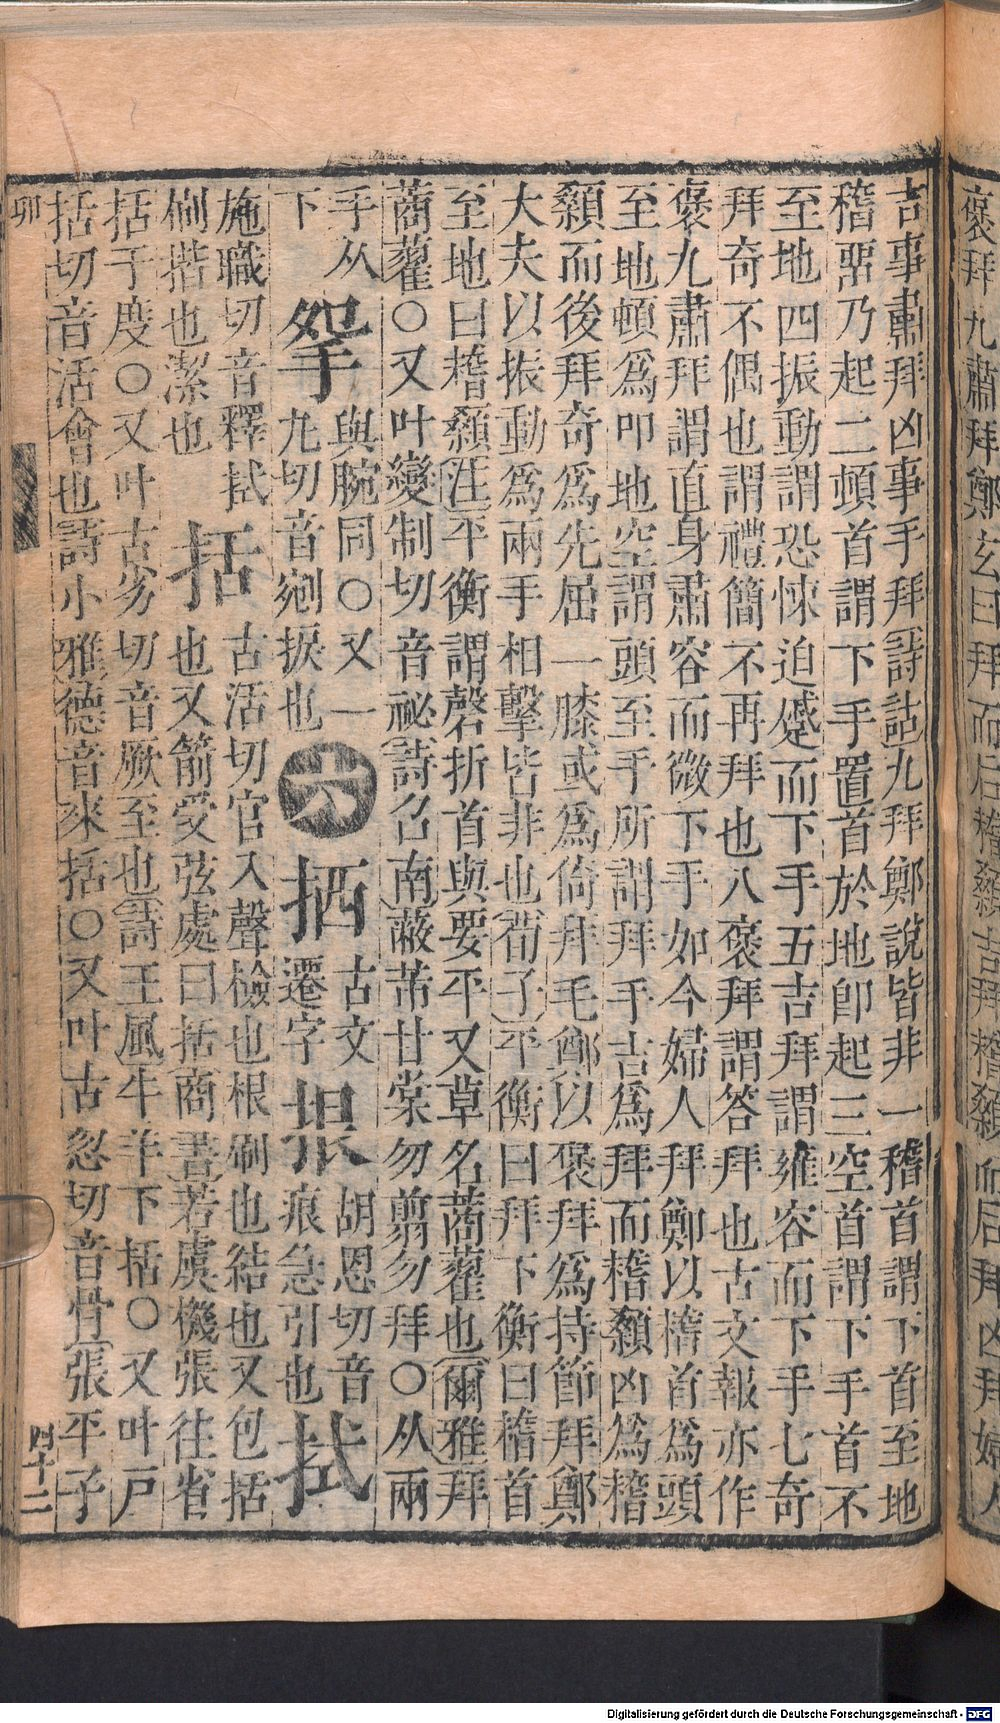 褒拜九肅拜鄭玄曰拜而后稽顙吉拜稽顙而后拜凶拜婦人
吉事肅拜凶事手拜詩詁九拜鄭說皆非一稽首謂下首至地
稽畱乃起二頓首謂下手置首於地卽起三空首謂下手首不
至地四振動謂恐悚迫蹙而下手五吉拜謂雍容而下手七奇
拜奇不偶也謂禮簡不再拜也八褒拜謂答拜也古文報亦作
褒九肅拜謂直身肅容而微下手如今婦人拜鄭以稽首爲頭
至地頓爲叩地空謂頭至手所謂拜手吉爲拜而稽顙凶爲稽
顙而後拜奇爲先屈一膝或爲倚拜毛鄭以褒拜爲持節拜鄭
大夫以振動爲兩手相擊皆非也荀子平衡曰拜下衡曰稽首
至地曰稽顙注平衡謂磬折首與要平又草名蔏藋也爾雅拜
蔏藋○又叶變制切音祕詩召南蔽芾甘棠勿翦勿拜○从兩
手从
下
與腕同○又一
丸切音剜捩也
六
拪
古文
遷字
拫
胡恩切音
痕急引也
拭
施職切音釋拭
刷揩也潔也
括
古活切官入聲檢也根刷也結也又包括
也又箭受弦處曰括商書若虞機張往省
括于度○又叶古劣切音厥至也詩王風牛羊下括○又叶戶
括切音活會也詩小雅德音來括○又叶古忽切音骨張平子
卯
四十二
Digitalisierung gefördert durch die Deutsche Forschungsgemeinschaft - DFG